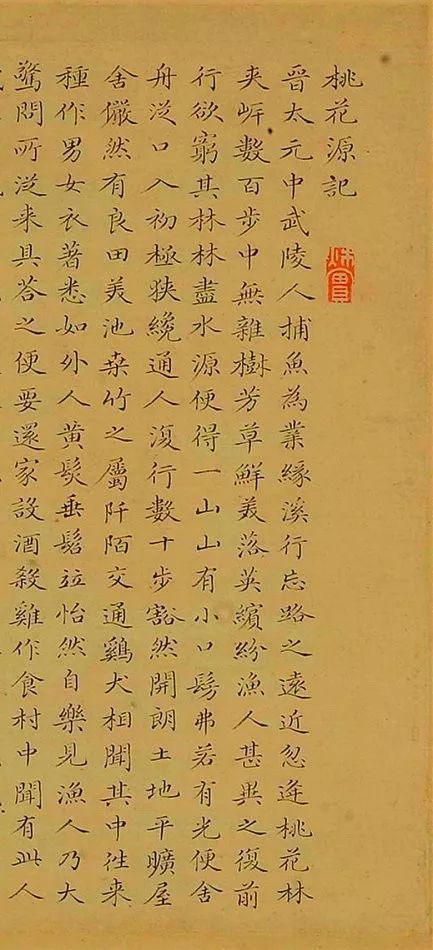 桃花源記
晉太元中武陵人捕魚為業緣溪行忘路之遠近忽逢桃花林
夾岸數百步中無雜樹芳草鮮美落英繽紛漁人甚異之復前
行欲窮其林林盡水源便得一山山有小口髣弗若有光便舍
舟從口入初極狹纔通人復行數十步豁然開朗土地平曠屋
舍儼然有良田美池桑竹之屬阡陌交通鷄犬相聞其中往来
種作男女衣著悉如外人黄髮垂髫竝怡然自樂見漁人乃大
驚問所從来具答之便要還家設酒殺雞作食村中聞有此人